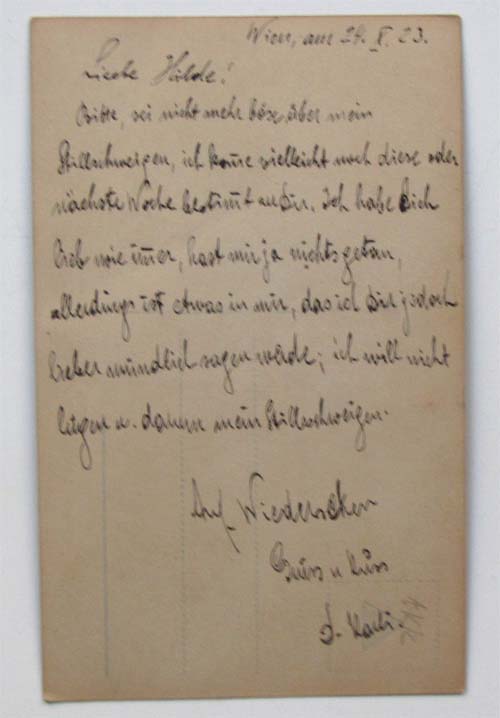 Wien, am 29. X. 23.
Liebe Hilde!
Bitte, sei nicht mehr böse über mein
Stillschweigen, ich kom̅e vielleicht noch diese oder
nächste Woche bestim̅t zu Dir. Ich habe Dich
lieb wie im̅er, hast mir ja nichts getan,
allerdings ist etwas in mir, das ich Dir jedoch
lieber mündlich sagen werde; ich will nicht
lügen u. darum mein Stillschweigen.
Auf Wiedersehen
Gruss u Kuss